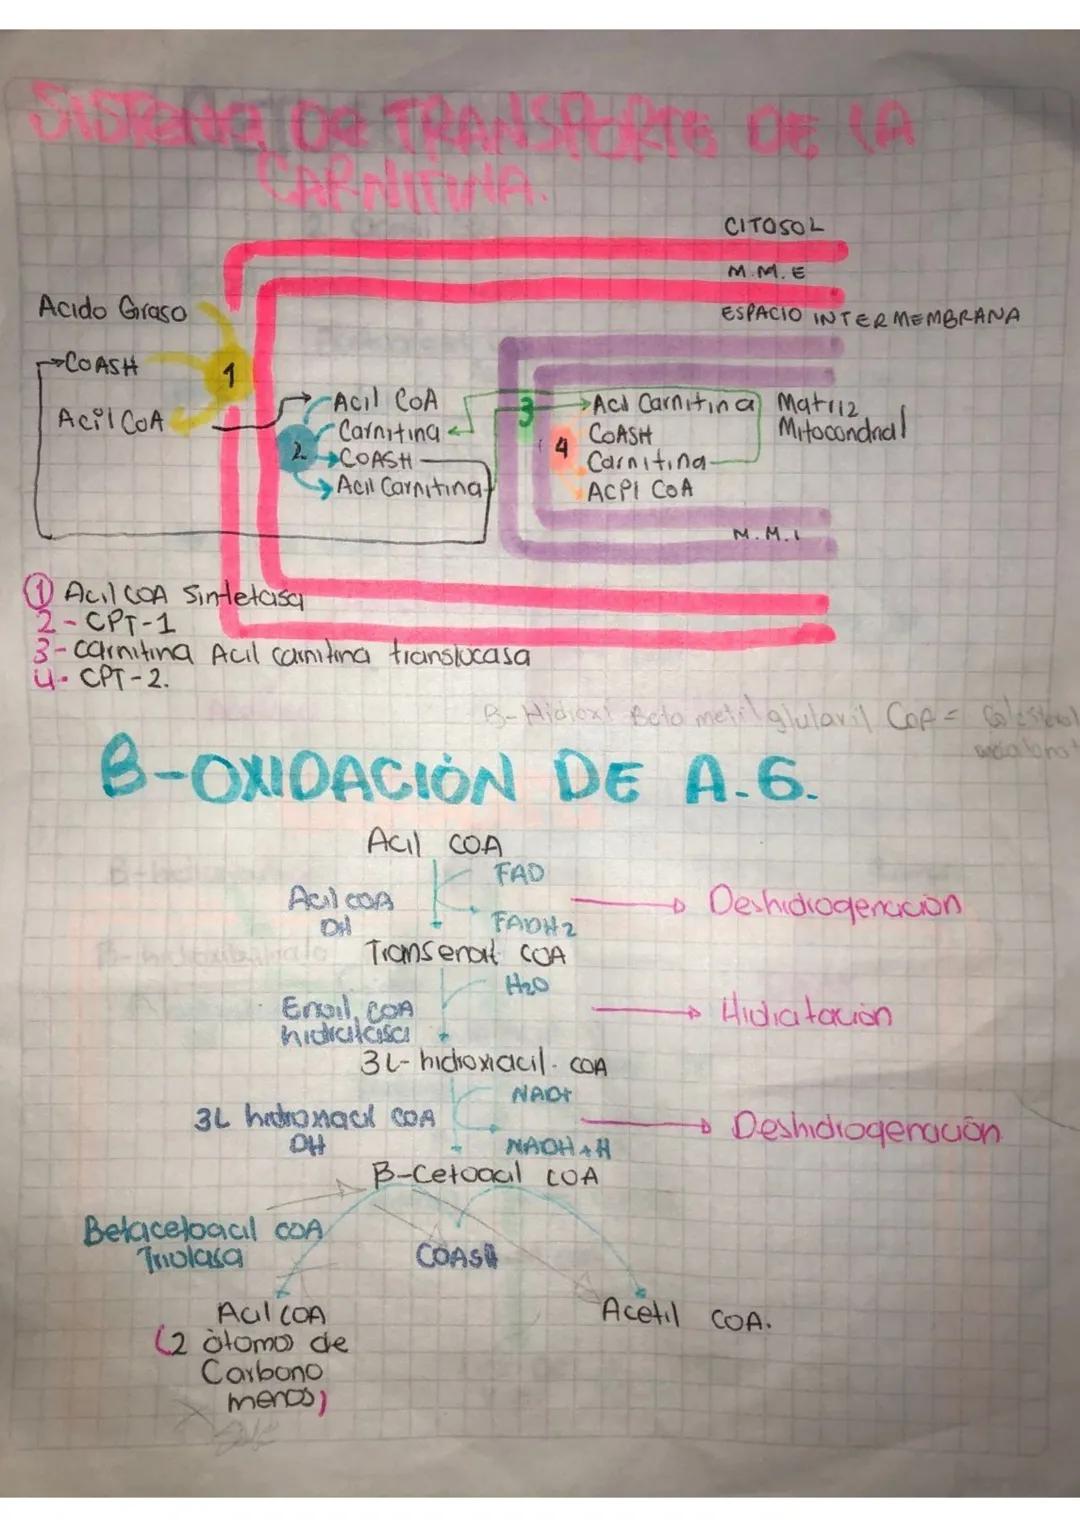 SISTEMA DE TRANSPORTE DE LA
CARNITINA.
CITOSOL
M.M.E
ESPACIO INTERMEMBRANA
Acido Graso
COASH
1
Acil CoA
Acil CoA
Carnitina
2
COASH
Acil Carnitina
3
Acil Carnitina
COASH
4
Carnitina
ACPI COA
Matriz
Mitocondrial
M.M.I
1 Acil COA Sintetasa
2- CPT-1
3- carnitina Acil carnitina translocasa
4. CPT-2.
B-Hidroxi Beta metil glutaril CoA = Colesterol
B-OXIDACIÓN DE A.G.
Acil COA
FAD
Acil COA
DH
FADH2
Deshidrogenación
Transenoil COA
H2O
Enoil COA
hidratasa
Hidratación
3L-hidroxiacil. COA
NAD+
3L hidroxiacil COA
DH
NADH+H
Deshidrogenación
B-Cetoacil COA
Betacetoacil COA
Tiolasa
COASH
Acil COA
(2 átomos de
Carbono
menos)
Acetil COA.